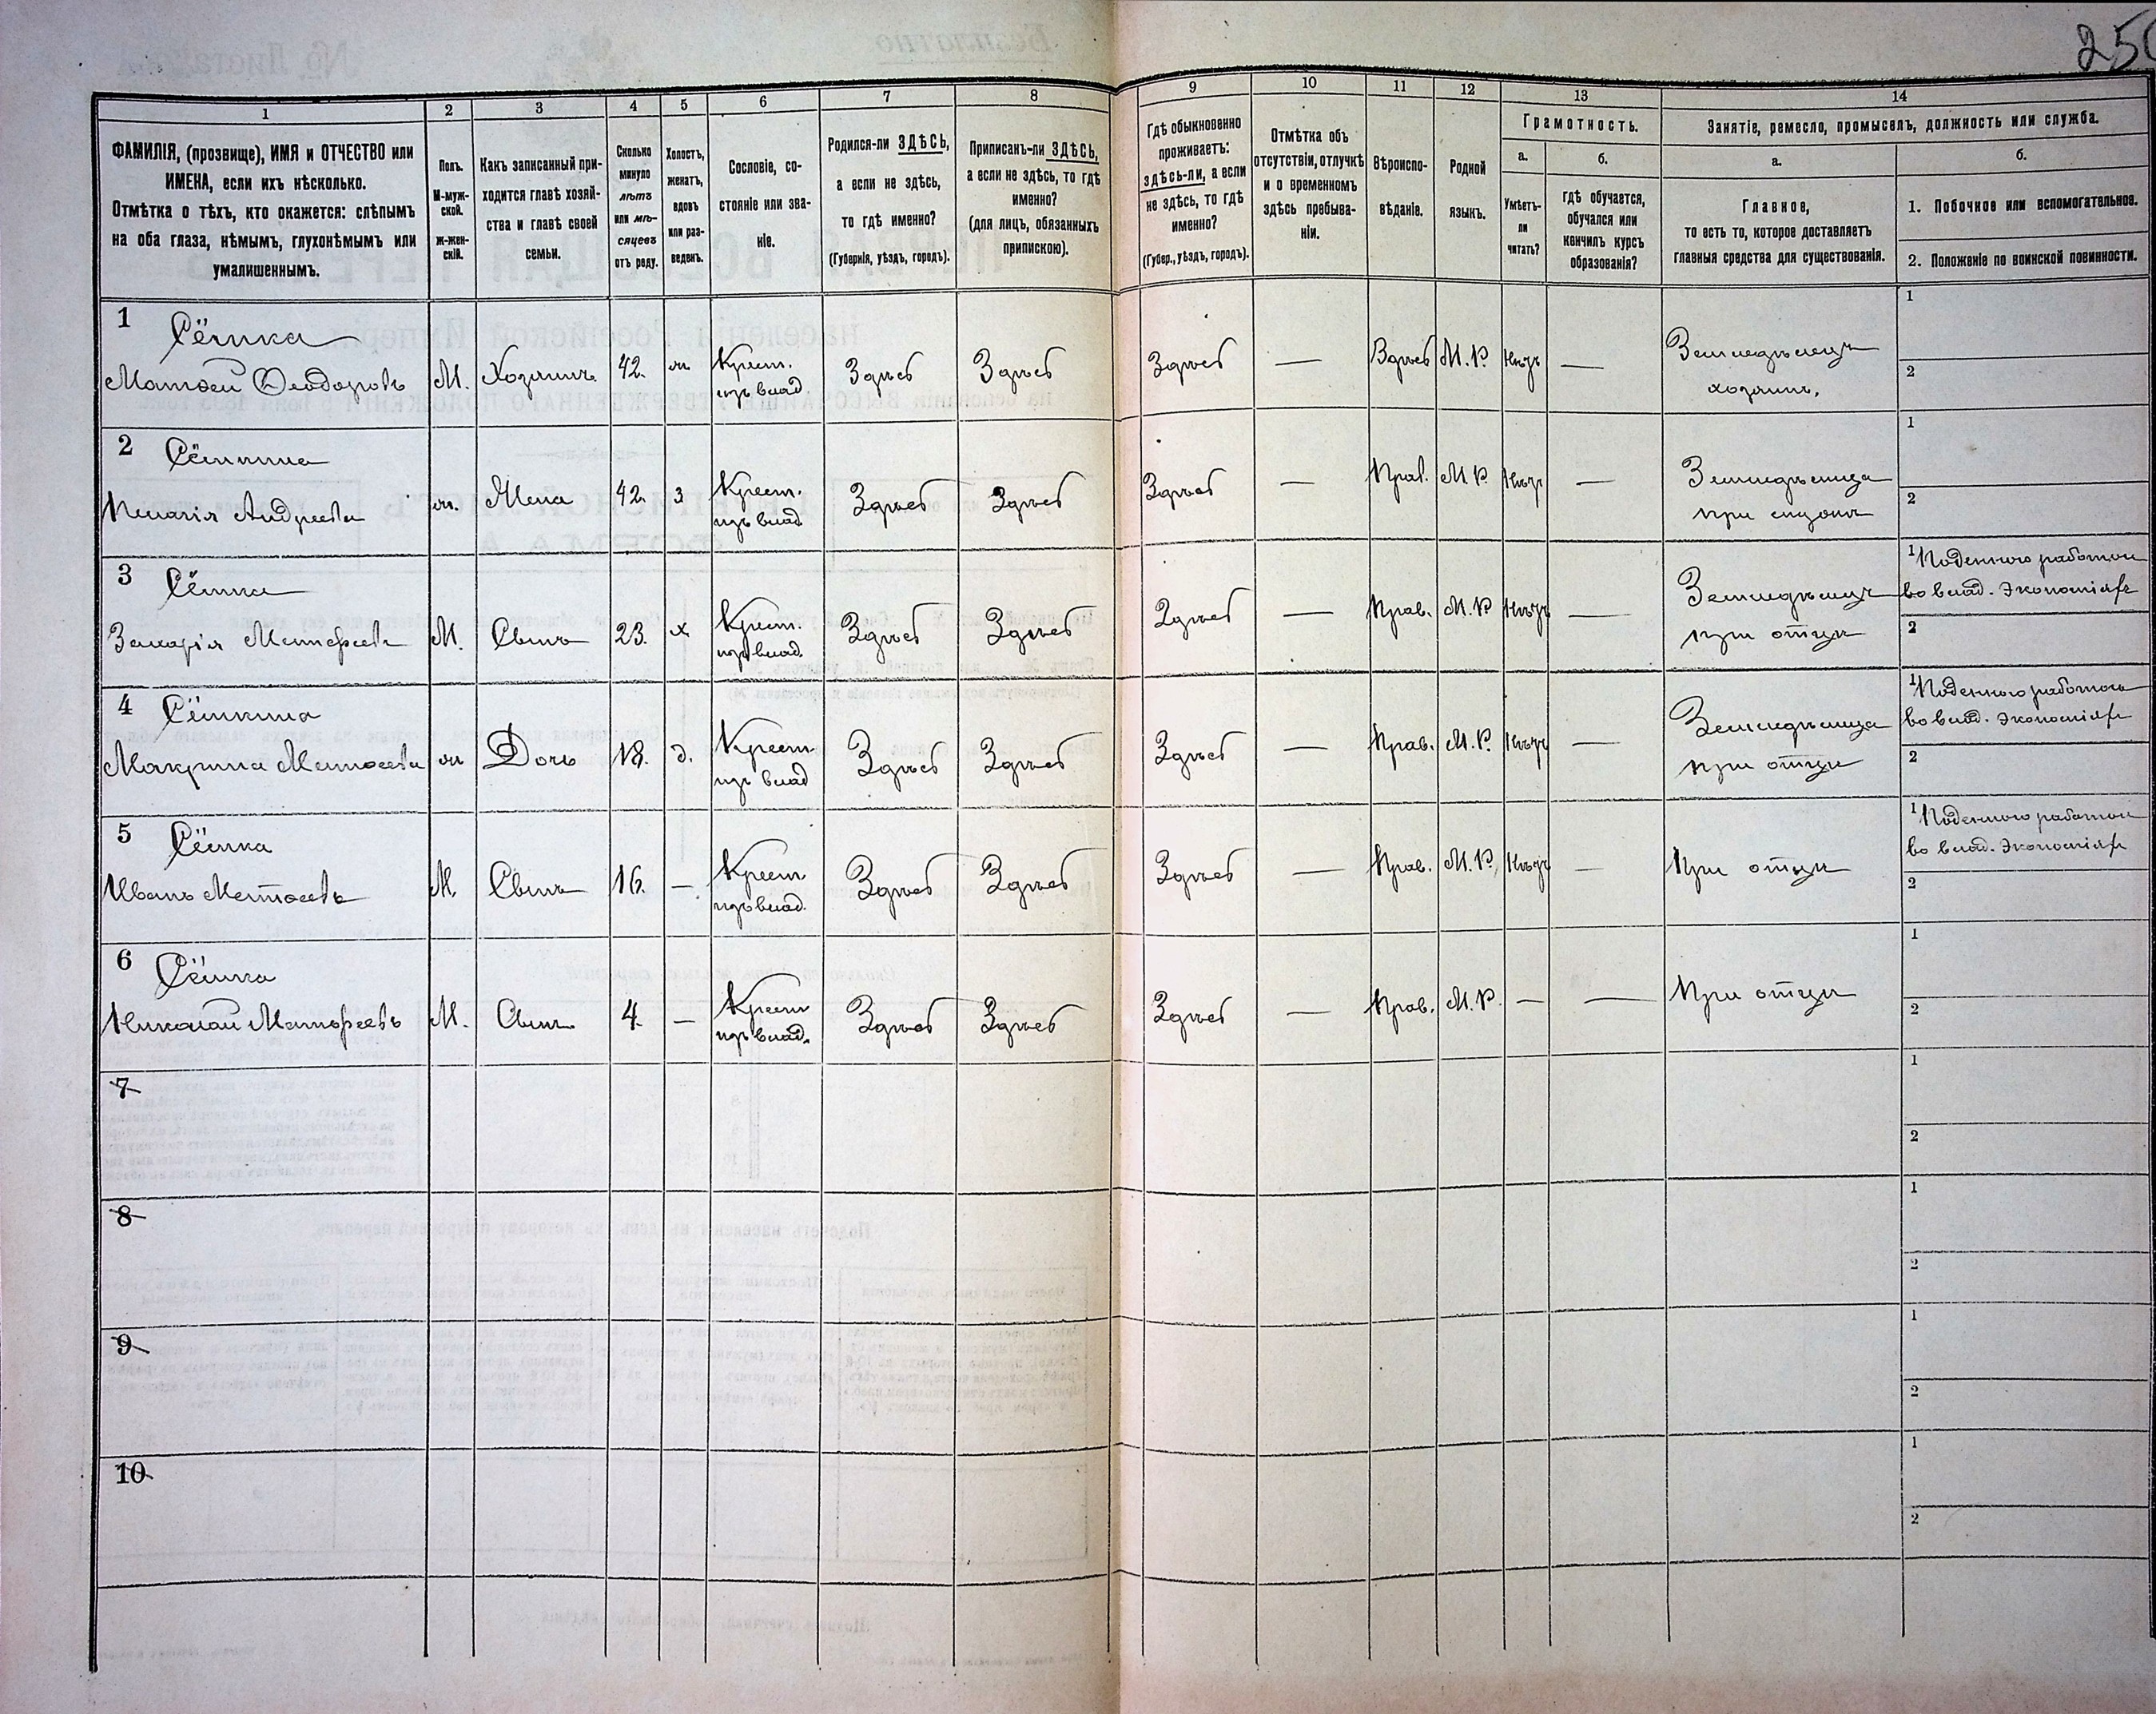 250
1 2 3 4 5 6 7 8 9 10 11 12 13 14
ФАМИЛІЯ, (прозвище), ИМЯ и ОТЧЕСТВО или
ИМЕНА, если ихъ нѣсколько.
Отмѣтка о тѣхъ, кто окажется: слѣпымъ
на оба глаза, нѣмымъ, глухонѣмымъ или
умалишеннымъ.
Полъ.
М-муж-
ской.
Ж-жен-
скій.
Какъ записанный при-
ходится главѣ хозяй-
ства и главѣ своей
семьи.
Сколько
минуло
лѣтъ
или мѣ-
сяцевъ
отъ роду.
Холостъ,
женатъ,
вдовъ
или раз-
веденъ.
Сословіе, со-
стояніе или зва-
ніе.
Родился-ли ЗДѢСЬ,
а если не здѣсь,
то гдѣ именно?
(Губернія, уѣздъ, городъ).
Приписанъ-ли ЗДѢСЬ,
а если не здѣсь, то гдѣ
именно?
(для лицъ, обязанныхъ
припискою).
Гдѣ обыкновенно
проживаетъ:
здѣсь-ли, а если
не здѣсь, то гдѣ
именно?
(Губер., уѣздъ, городъ).
Отмѣтка объ
отсутствіи, отлучкѣ
и о временномъ
здѣсь пребыва-
ніи.
Вѣроиспо-
вѣданіе.
Родной
языкъ.
Грамотность.
а.
Умѣетъ-
ли
читать?
б.
гдѣ обучается,
обучался или
кончилъ курсъ
образованія?
Занятіе, ремесло, промыселъ, должность или служба.
а.
Главное,
то есть то, которое доставляетъ
главныя средства для существованія.
б.
1. Побочное или вспомогательное.
2. Положеніе по воинской повинности.
1 Сёмка
Матвей Ѳеодоровъ М. Хозяинъ 42. ж Крест. Здѣсь Здѣсь Здѣсь — Здѣсь М.Р. Нѣтъ — Земледѣлецъ 1
изъ влад. хозяинъ. 2
2 Сёмкина
Пелагія Андреева ж. Жена 42 з Крест. Здѣсь Здѣсь Здѣсь — Прав. М.Р. Нѣтъ — Земледѣлица 1
изъ влад. при 2
3 Сёмка
Захарія Матфеевъ М. Сынъ 23. х Крест. Здѣсь Здѣсь Здѣсь — Прав. М.Р. Нѣтъ — Земледѣлецъ 1 Поденною работою
изъ влад. при отцѣ во влад. Экономіяхъ
2
4 Сёмкина
Макрина Матѳеева ж Дочь 18. д. Крест. Здѣсь Здѣсь Здѣсь — Прав. М.Р. Нѣтъ — Земледѣлица 1 Поденною работою
изъ влад при отцѣ во влад. Экономіях
2
5 Сёмка
Иванъ Матѳеевъ М. Сынъ 16. — Крест Здѣсь Здѣсь Здѣсь — Прав. М.Р. Нѣтъ — При отцѣ 1 Поденною работою
изъ влад. во влад. Экономіях
2
6 Сёмка
Николай Матфеевъ М. Сынъ 4. — Крест Здѣсь Здѣсь Здѣсь — Прав. М.Р. — — При отцѣ 1
изъ влад. 2
7 1
2
8 1
2
9 1
2
10 1
2